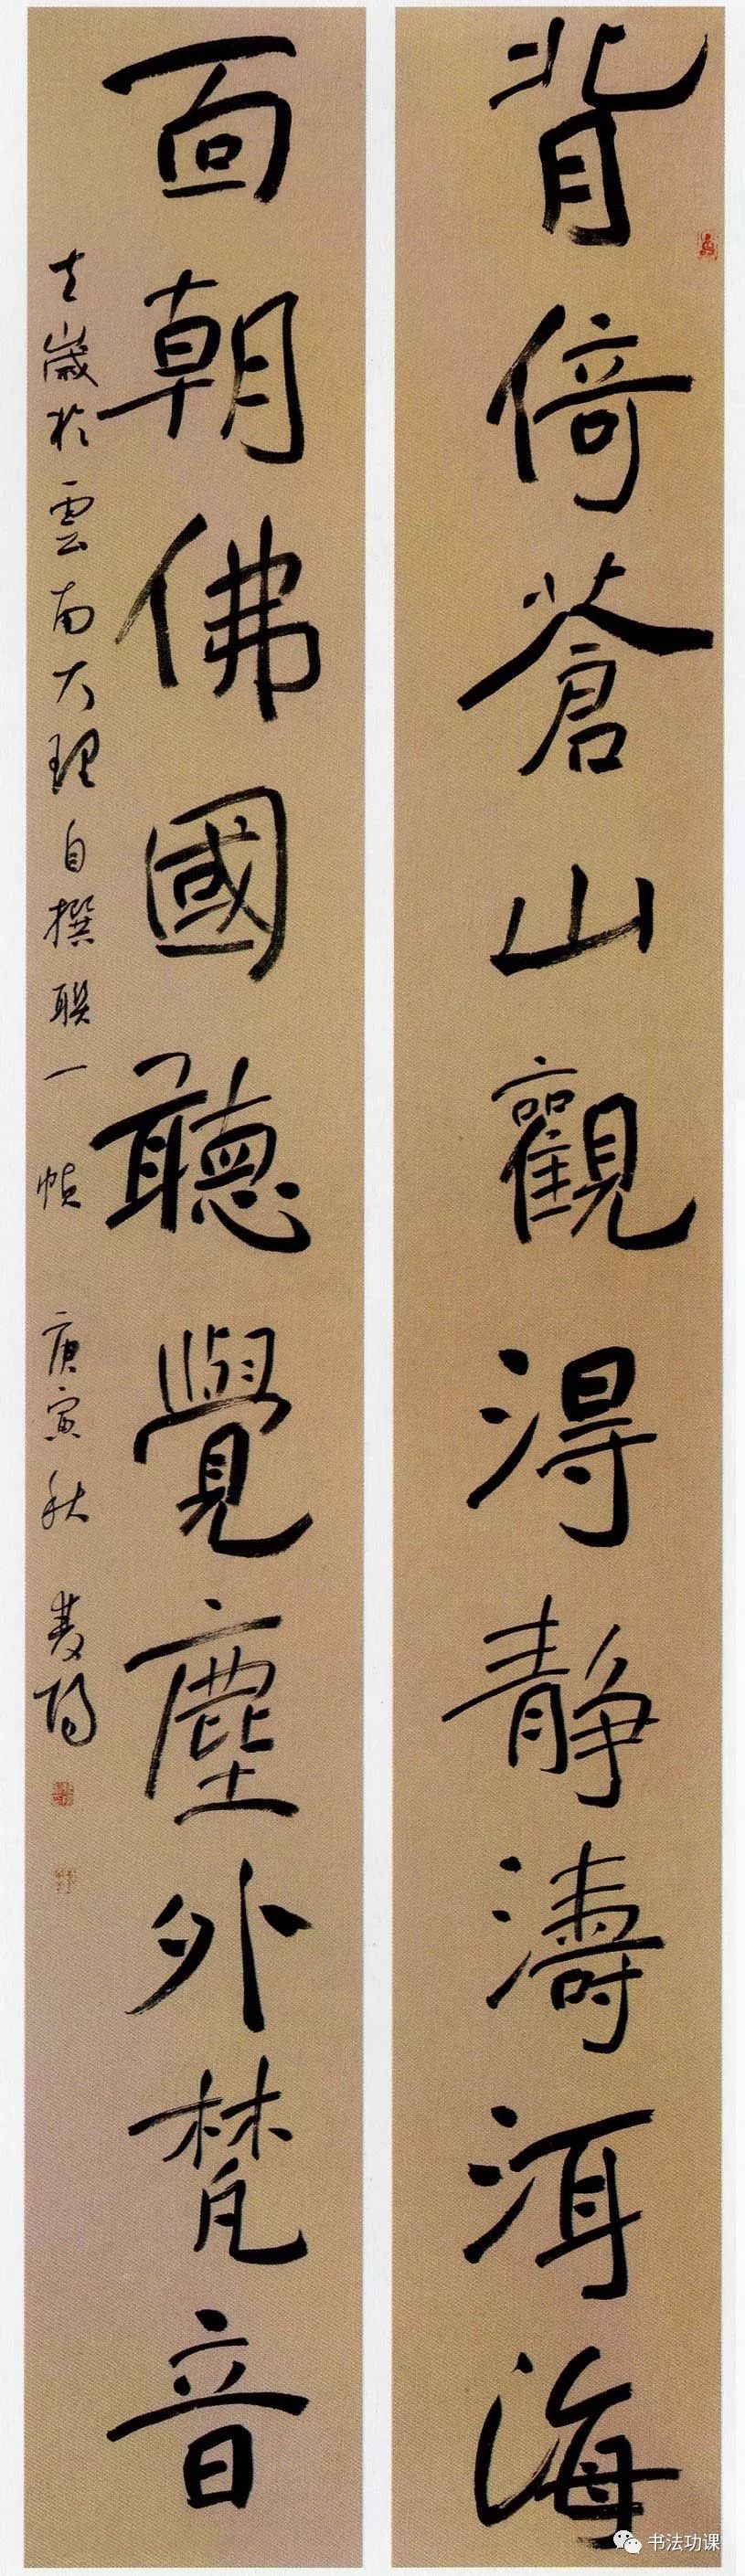 背倚蒼山觀淂静濤洱海
面朝佛國聽覺塵外梵音
去歲於雲南大理自撰联一帧 庚寅秋
书法功课